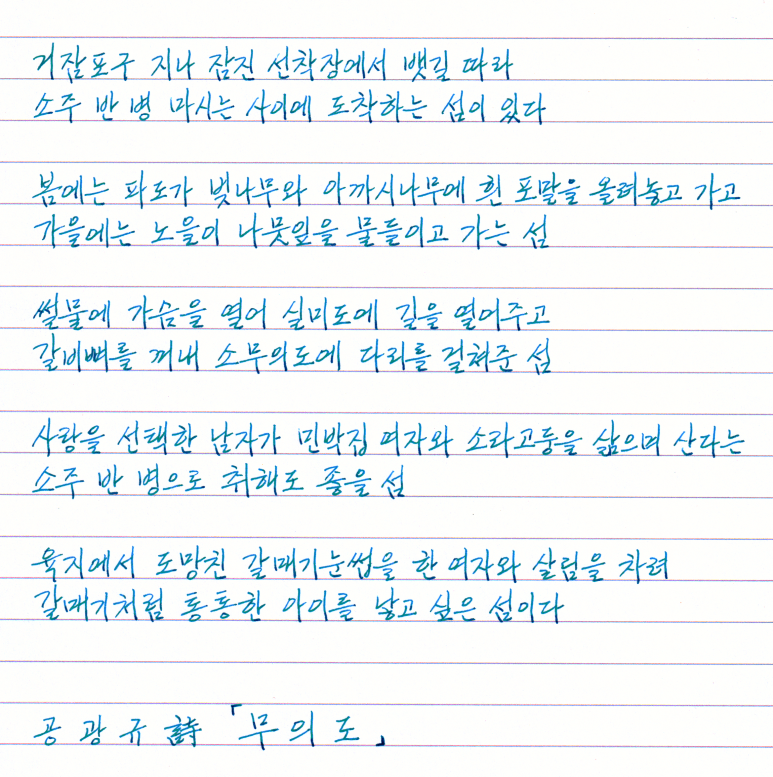 거잠포구 지나 잠진 선착장에서 뱃길 따라
소주 반 병 마시는 사이에 도착하는 섬이 있다
봄에는 파도가 벚나무와 아까시나무에 흰 포말을 올려놓고 가고
가을에는 노을이 나뭇잎을 물들이고 가는 섬
썰물에 가슴을 열어 실미도에 길을 열어주고
갈비뼈를 꺼내 소무의도에 다리를 걸쳐준 섬
사랑을 선택한 남자가 민박집 여자와 소라고둥을 삶으며 산다는
소주 반 병으로 취해도 좋을 섬
육지에서 도망친 갈매기눈썹을 한 여자와 살림을 차려
갈매기처럼 통통한 아이를 낳고 싶은 섬이다
공광규 詩 「무의도」